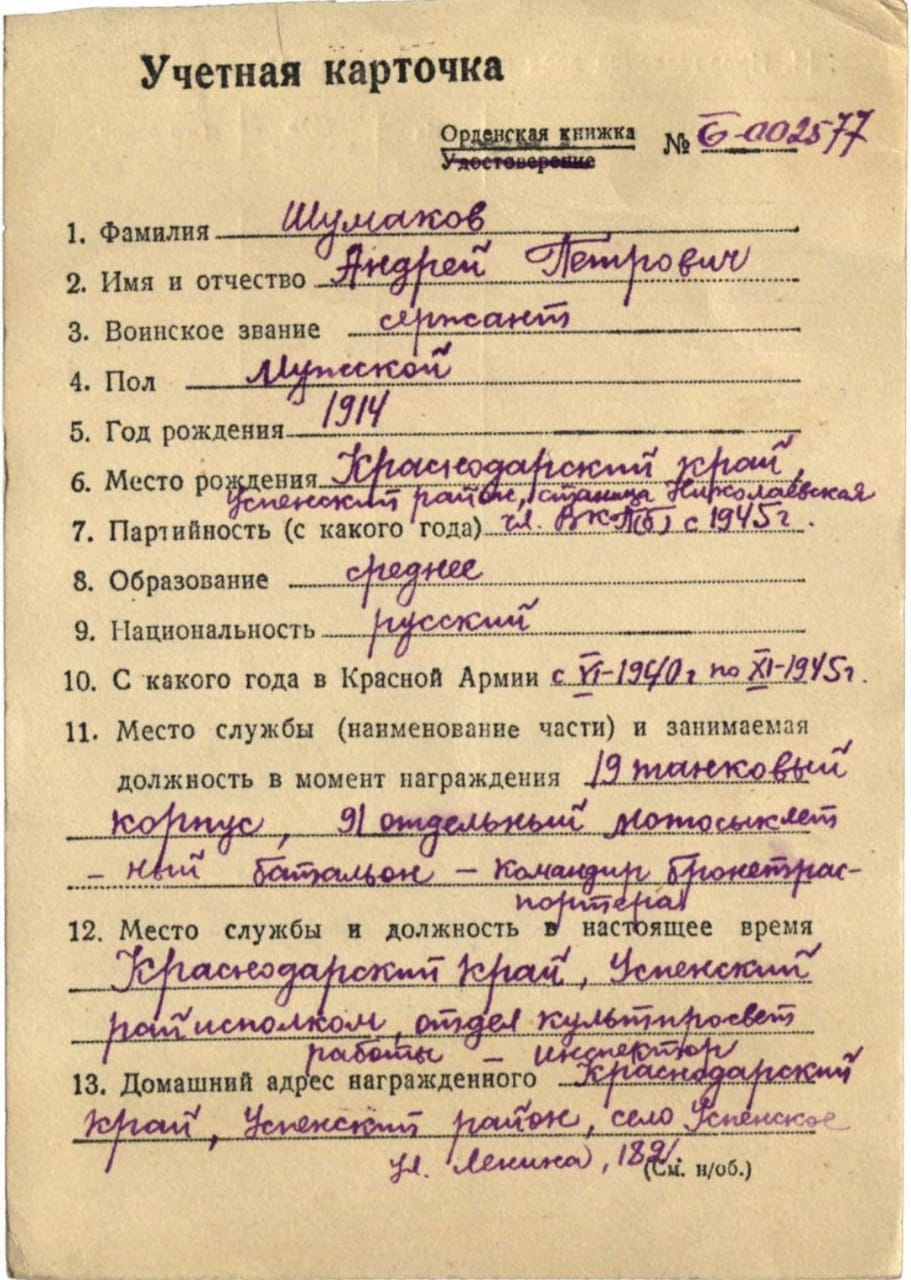 Учетная карточка
Орденская книжка № Б-002577
Удостоверение
1. Фамилия Шумаков
2. Имя и отчество Андрей Петрович
3. Воинское звание сержант
4. Пол Мужской
5. Год рождения 1914
6. Место рождения Краснодарский край,
Успенский район, станица Николаевская
7. Партийность (с какого года) чл. ВКП(б) с 1945 г.
8. Образование среднее
9. Национальность русский
10. С какого года в Красной Армии с VI-1940 г по XI-1945 г.
11. Место службы (наименование части) и занимаемая
должность в момент награждения 19 танковый
корпус, 91 отдельный мотосыклет
-ный батальон - командир бронетрас-
портера
12. Место службы и должность в настоящее время
Краснодарский край, Успенский
райисполком, отдел культпросвет
работы - инспектор
13. Домашний адрес награжденного Краснодарский
край, Успенский район, село Успенское
ул. Ленина, 182.
(См. н/об.)